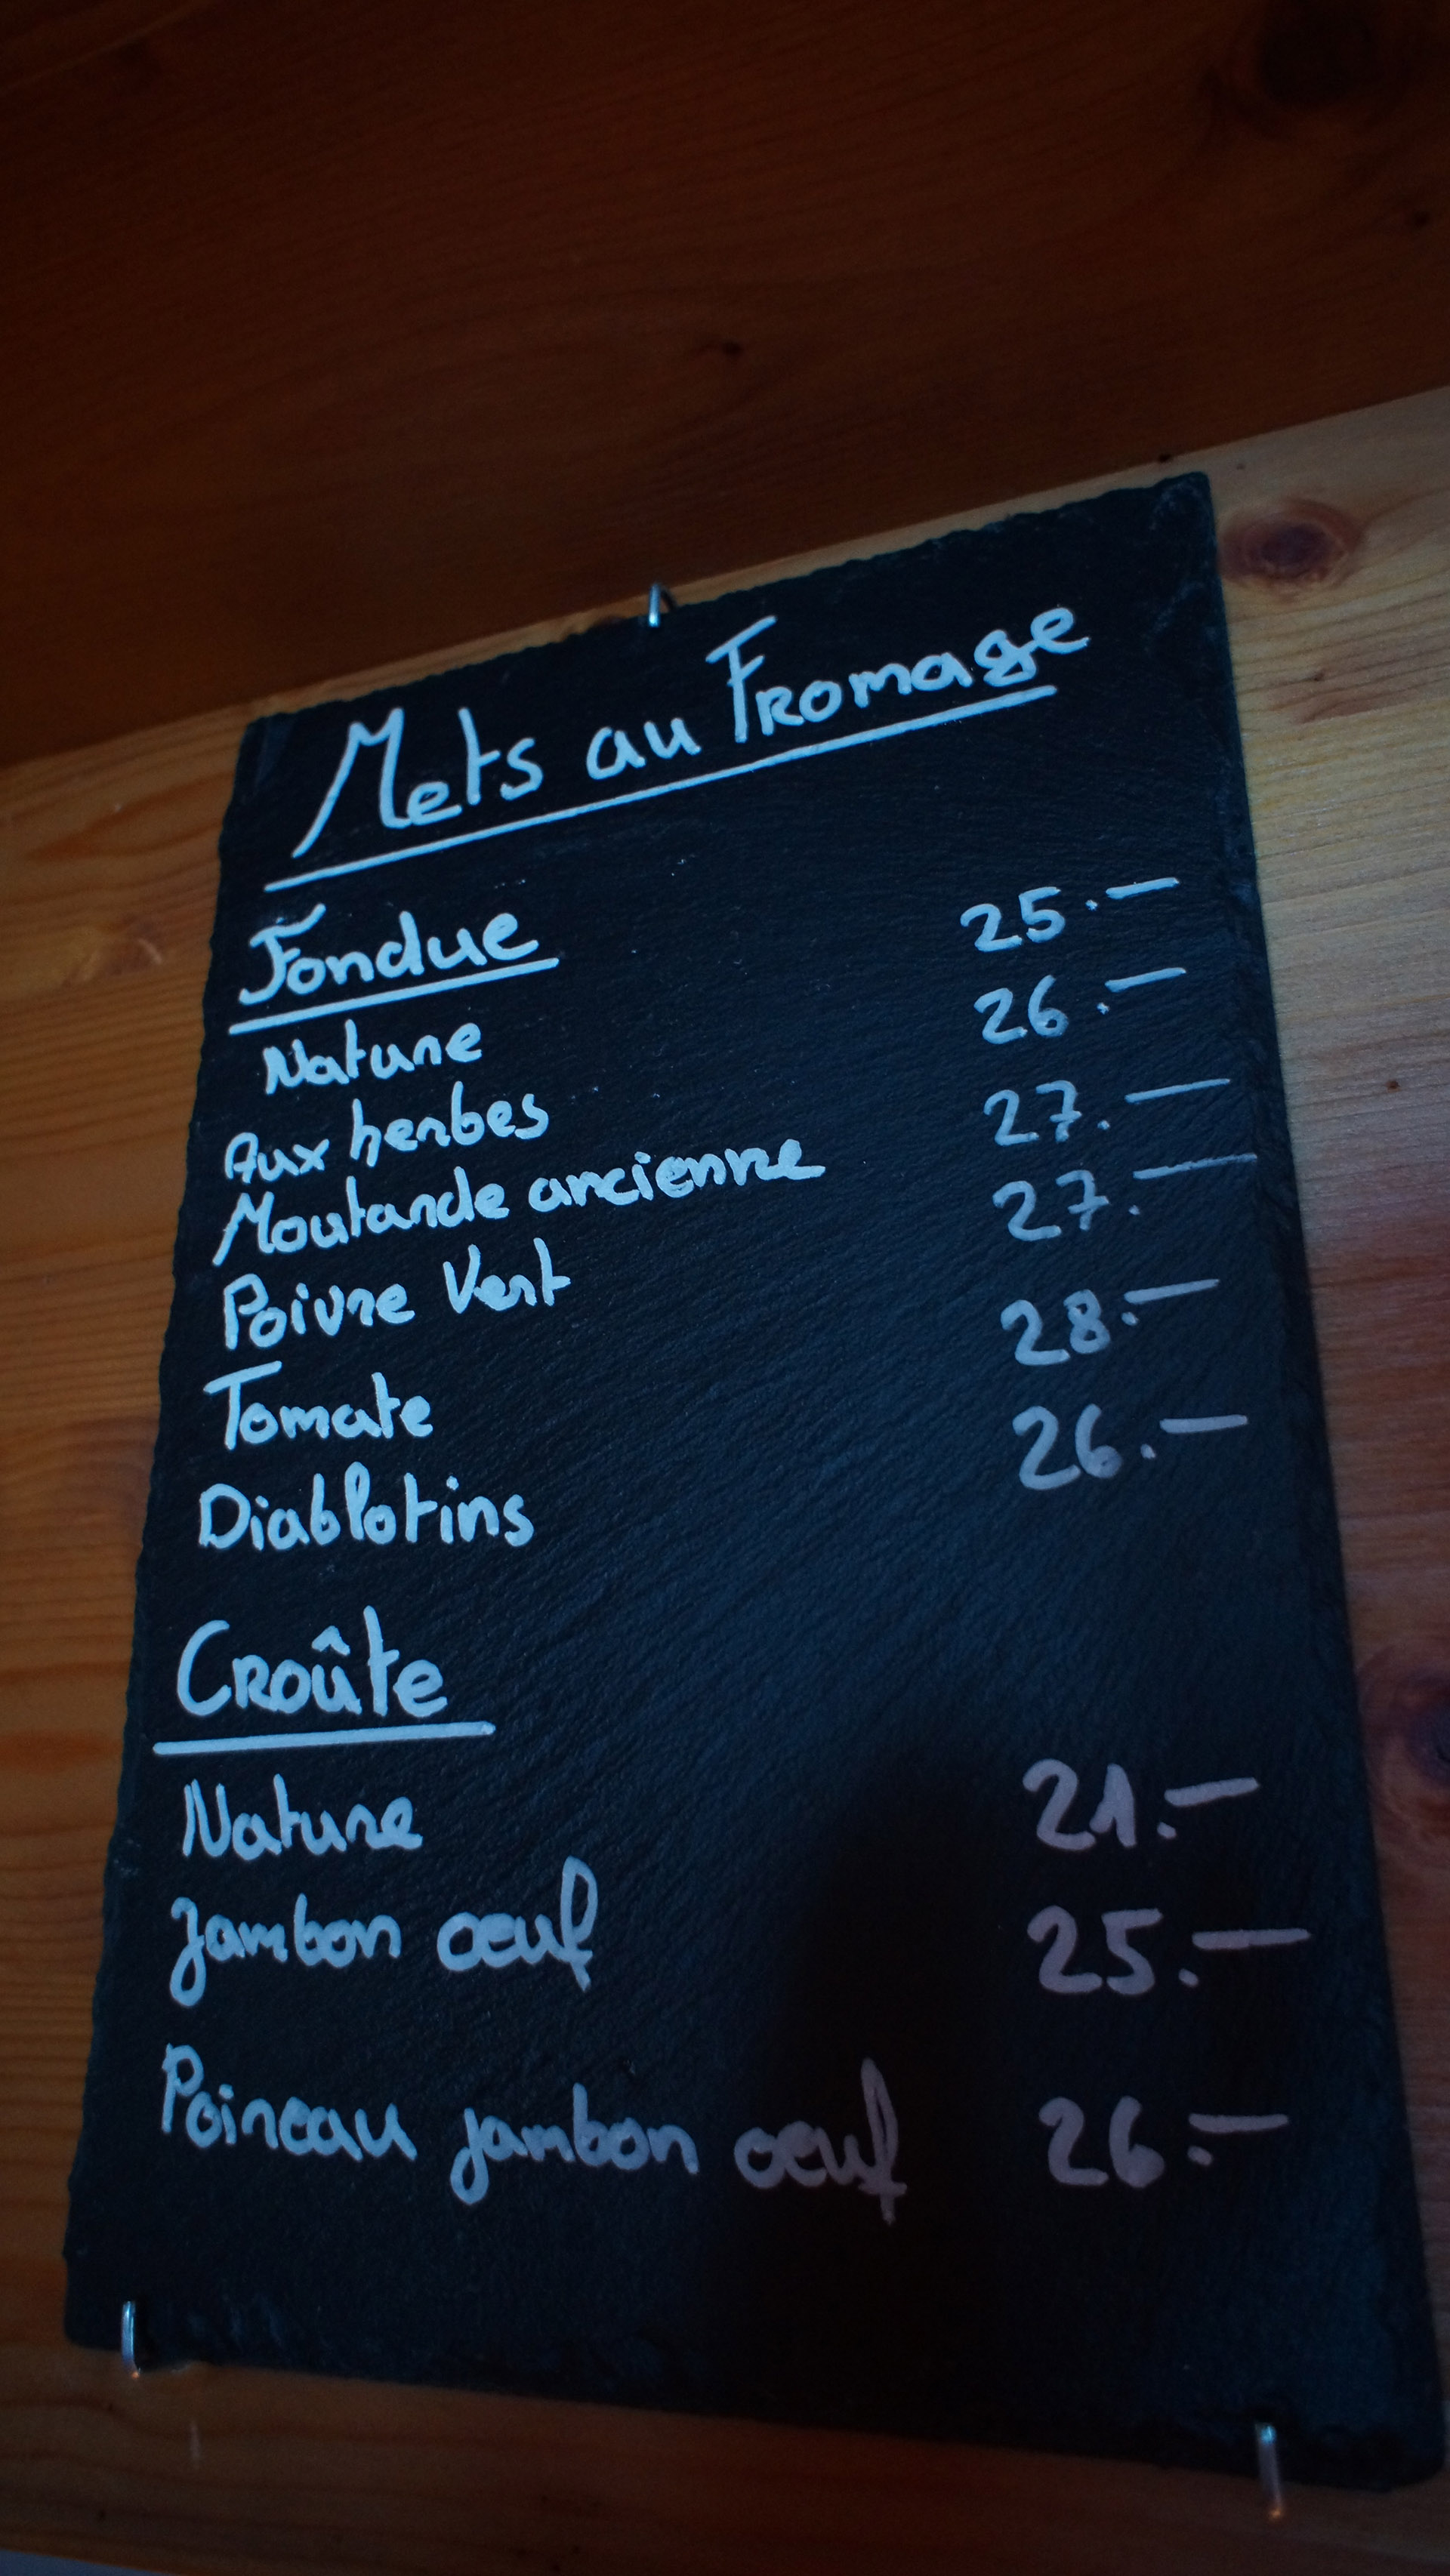 Mets au Fromage
Fondue
Nature 25.—
Aux herbes 26.—
Moutarde ancienne 27.—
Poivre Vert 27.—
Tomate 28.—
Diablotins 26.—
Croûte
Nature 21.—
Jambon oeuf 25.—
Poireau jambon oeuf 26.—